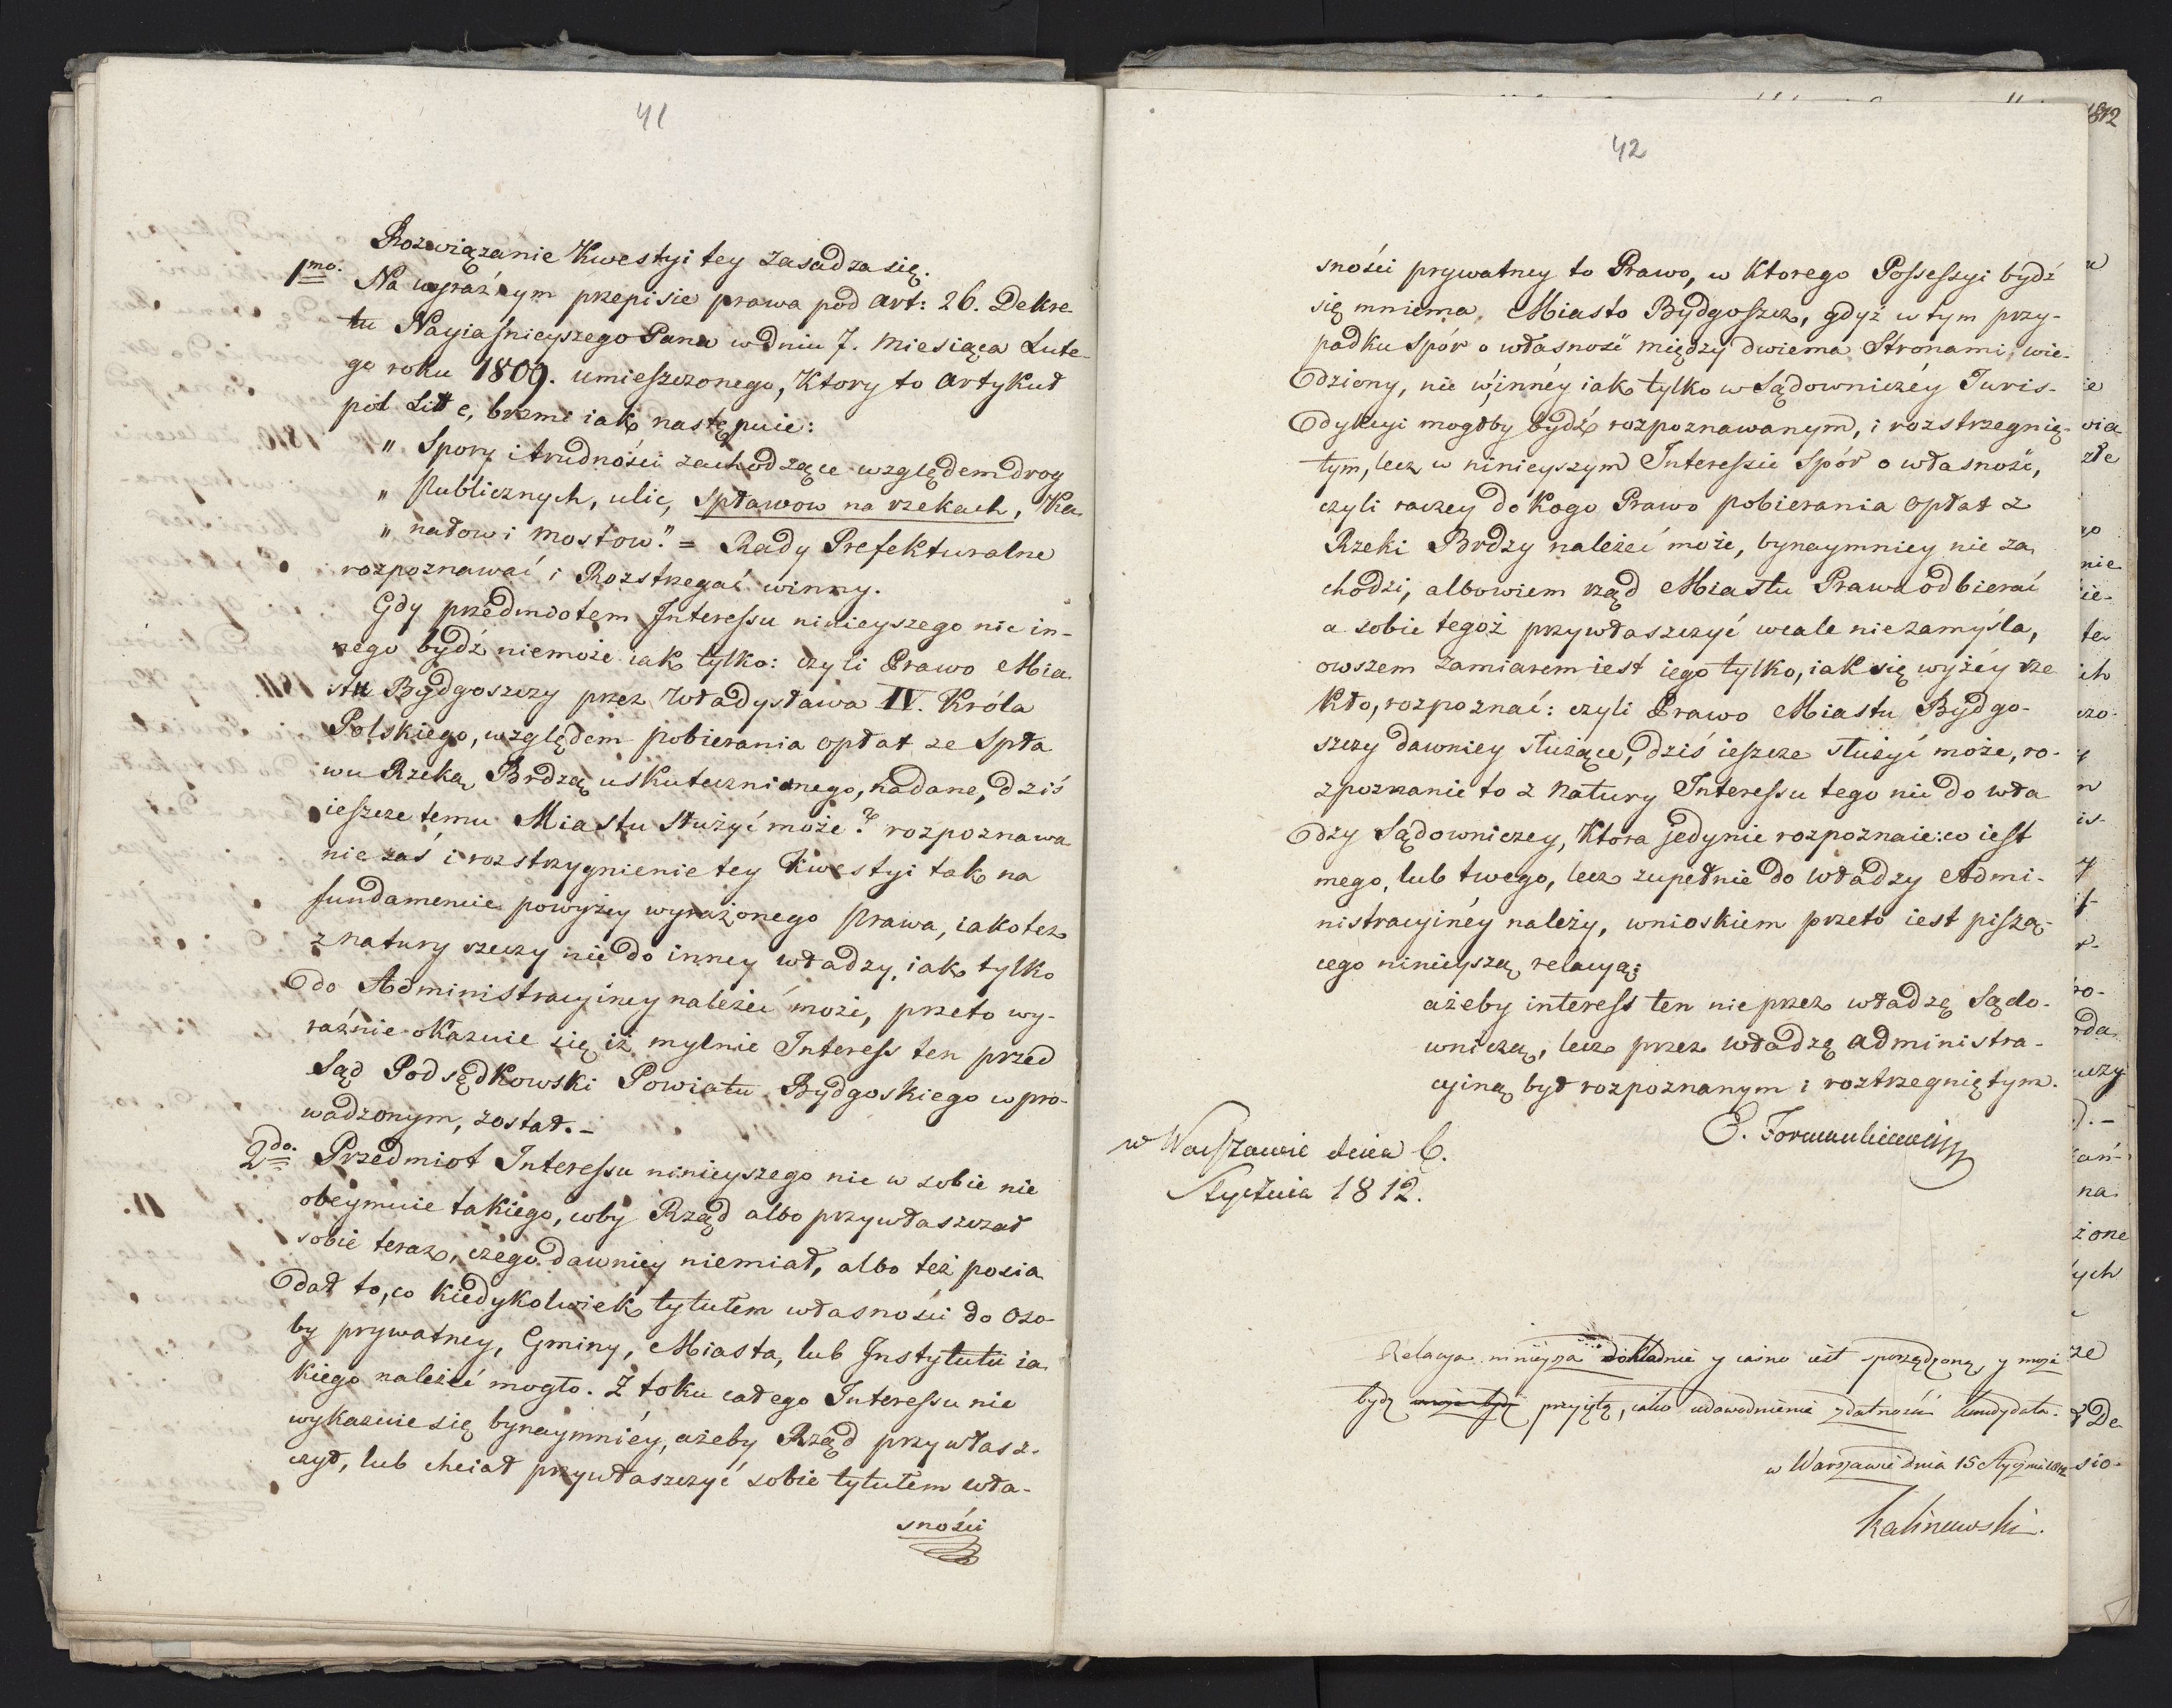 41
Rozwiązanie Kwestyi tey zasadza się.
1mo. Na wyraźnym przepisie prawa pod art: 26. Dekre-
tu Nayiaśnieyszego Pana w dniu 7. Miesiąca Lute-
go roku 1809. umieszczonego, Ktory to artykuł
pod Litt e, brzmi iak następuie:
" Spory i trudności zachodzące względem drog
" Publicznych, ulic, spławow na rzekach, Ka-
" nałow i mostow." = Rady Prefekturalne
rozpoznawać i Rozstrzegać winny.
Gdy przedmiotem Interessu ninieyszego nic in-
nego bydź niemoże iak tylko: czyli Prawo Mia-
stu Bydgoszczy przez Władysława IV. Króla
Polskiego, względem pobierania opłat ze Spła
wu Rzeką Brdzą uskutecznionego, nadane, dziś
ieszcze temu Miastu służyć może? rozpoznawa
nie zaś i rozstrzygnienie tey Kwestyi tak na
fundamencie powyżey wyrażonego prawa, iakotez
z natury rzeczy nie do inney władzy, iak tylko
do Administracyiney należeć może, przeto wy-
raźnie okazuie się iż mylnie Interess ten przed
Sąd Podsędkowski Powiatu Bydgoskiego wpro-
wadzonym, został.-
2do. Przedmiot Interessu ninieyszego nic w sobie nie
obeymuie takiego, coby Rząd albo przywłaszczał
sobie teraz, czego dawniey niemiał, albo też posia
dał to, co kiedykolwiek tytułem własności do oso-
by prywatney, Gminy, Miasta, lub Instytutu ia
kiego należeć mogło. Z toku całego Interessu nie
wykazuie się bynaymniéy, ażeby Rząd przywłasz-
czył, lub chciał przywłaszczyć sobie tytułem wła-
sności
42
sności prywatney to Prawo, w Ktorego Possessyi bydź
się mniema, Miasto Bydgoszcz, gdyż w tym przy-
padku Spór o własność między dwiema Stronami wie-
dziony, nie w innéy iak tylko w Sądowniczéy Juris-
dykcyi mogłby bydź rozpoznawanym, i rozstrzegnię-
tym, lecz w ninieyszym Interessie Spór o własność,
czyli raczey do Kogo Prawo pobierania opłat z
Rzeki Brdzy należeć może, bynaymniey nie za
chodzi, albowiem rząd Miastu Prawa odbierać
a sobie tegoż przywłaszczyć wcale niezamyśla,
owszem zamiarem iest iego tylko, iak się wyżéy rze
kło, rozpoznać: czyli Prawo Miastu Bydgo-
szczy dawniey służące, dziś ieszcze służyć może, ro-
zpoznanie to z natury Interessu tego nie do wła
dzy Sądowniczey, Ktora jedynie rozpoznaie: co iest
mego, lub twego, lecz zupełnie do władzy Admi-
nistracyinéy należy, wnioskiem przeto iest piszą-
cego ninieyszą relacyą:
ażeby interess ten nie przez władzę Sądo-
wniczą, lecz przez władzę administra-
cyiną był rozpoznanym i roztrzegniętym.
w Warszawie dnia 6.
Stycznia 1812.
Relacya ninieysza dokładnie y iasno iest sporządzoną, y może
bydz może bydz przyiętą, iako udowodnienie zdatności kandydata.
w Warszawie dnia 15 Stycznia 1812
Kalinowski.
1812